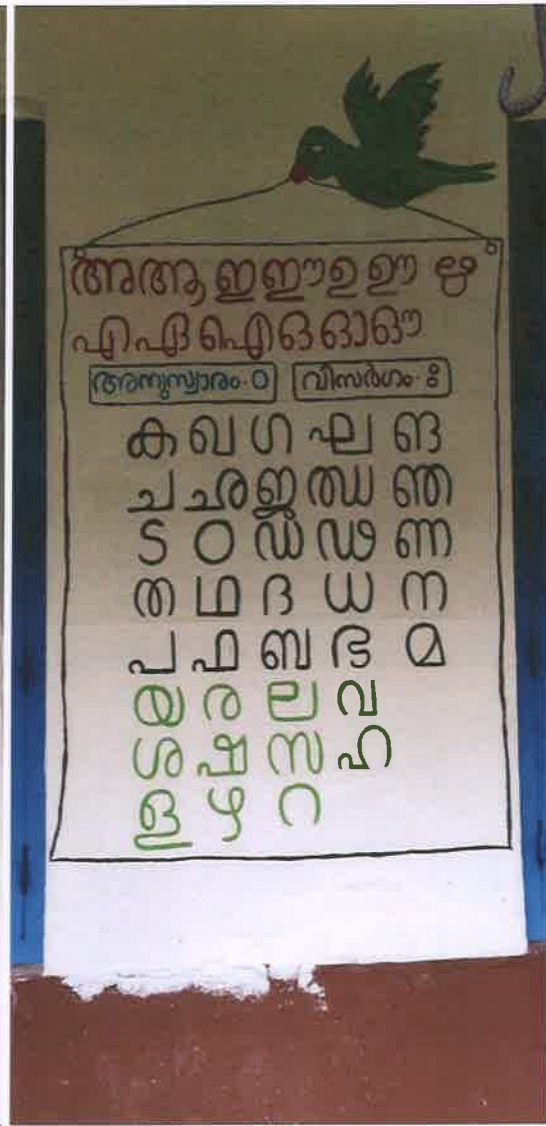 അ ആ ഇ ഈ ഉ ഊ ഋ
എ ഏ ഐ ഒ ഓ ഔ
അനുസ്വാരം-ം വിസർഗം-ഃ
ക ഖ ഗ ഘ ങ
ച ഛ ജ ഝ ഞ
ട ഠ ഡ ഢ ണ
ത ഥ ദ ധ ന
പ ഫ ബ ഭ മ
യ ര ല വ
ശ ഷ സ ഹ
ള ഴ റ